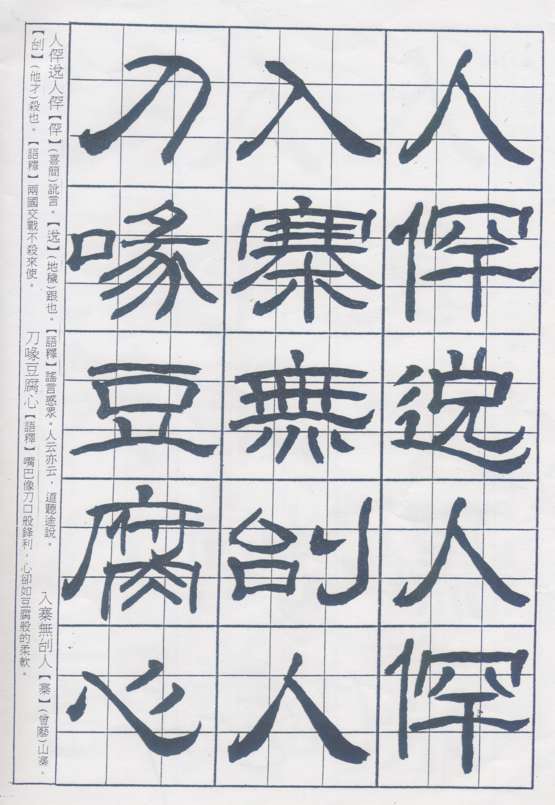 人人
入寨無刣人
刀喙豆腐心
人人【】(喜簡)訛言。【】(地穢)跟也。【語釋】謠言惑眾。人云亦云，道聽途說。 入寨無刣人【寨】()山寨。
【刣】(他才)殺也。【語釋】兩國交戰不殺來使。 刀喙豆腐心【語釋】嘴巴像刀口般鋒利，心卻如豆腐般的柔軟。